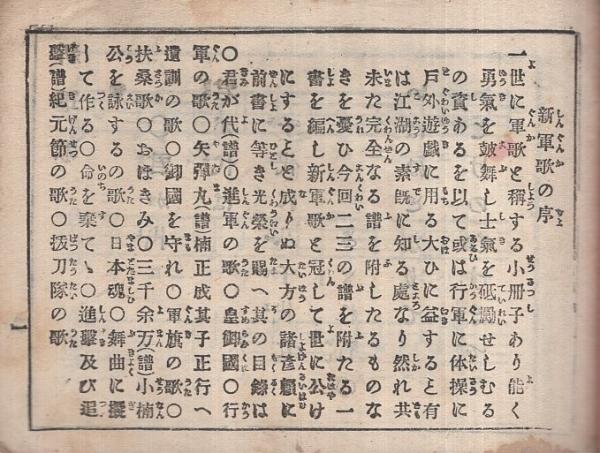 新軍歌の序
一世に軍歌と稱する小冊子あり能く
勇氣を皷舞し士氣を砥勵せしむる
の資あるを以て或は行軍に体操に
戸外遊戯に用る大ひに益すると有
は江湖の素既に知る處なり然れ共
未た完全なる譜を附したるものな
きを憂ひ今回二三の譜を附たる一
書を編し新軍歌と冠して世に公け
にするとと成りぬ大方の諸彦願に
前書に等き光榮を賜へ其の目録は
〇君が代(譜)〇進軍の歌〇皇御國〇行
軍の歌〇矢彈丸(譜)楠正成其子正行へ
遺訓の歌〇御國を守れ〇軍旗の歌〇
扶桑歌〇おほきみ〇三千余万(譜)小楠
公を詠するの歌〇日本魂〇舞曲に擬
して作る〇命を棄てゝ〇進擊及び追
擊(譜)紀元節の歌〇拔刀隊の歌
一